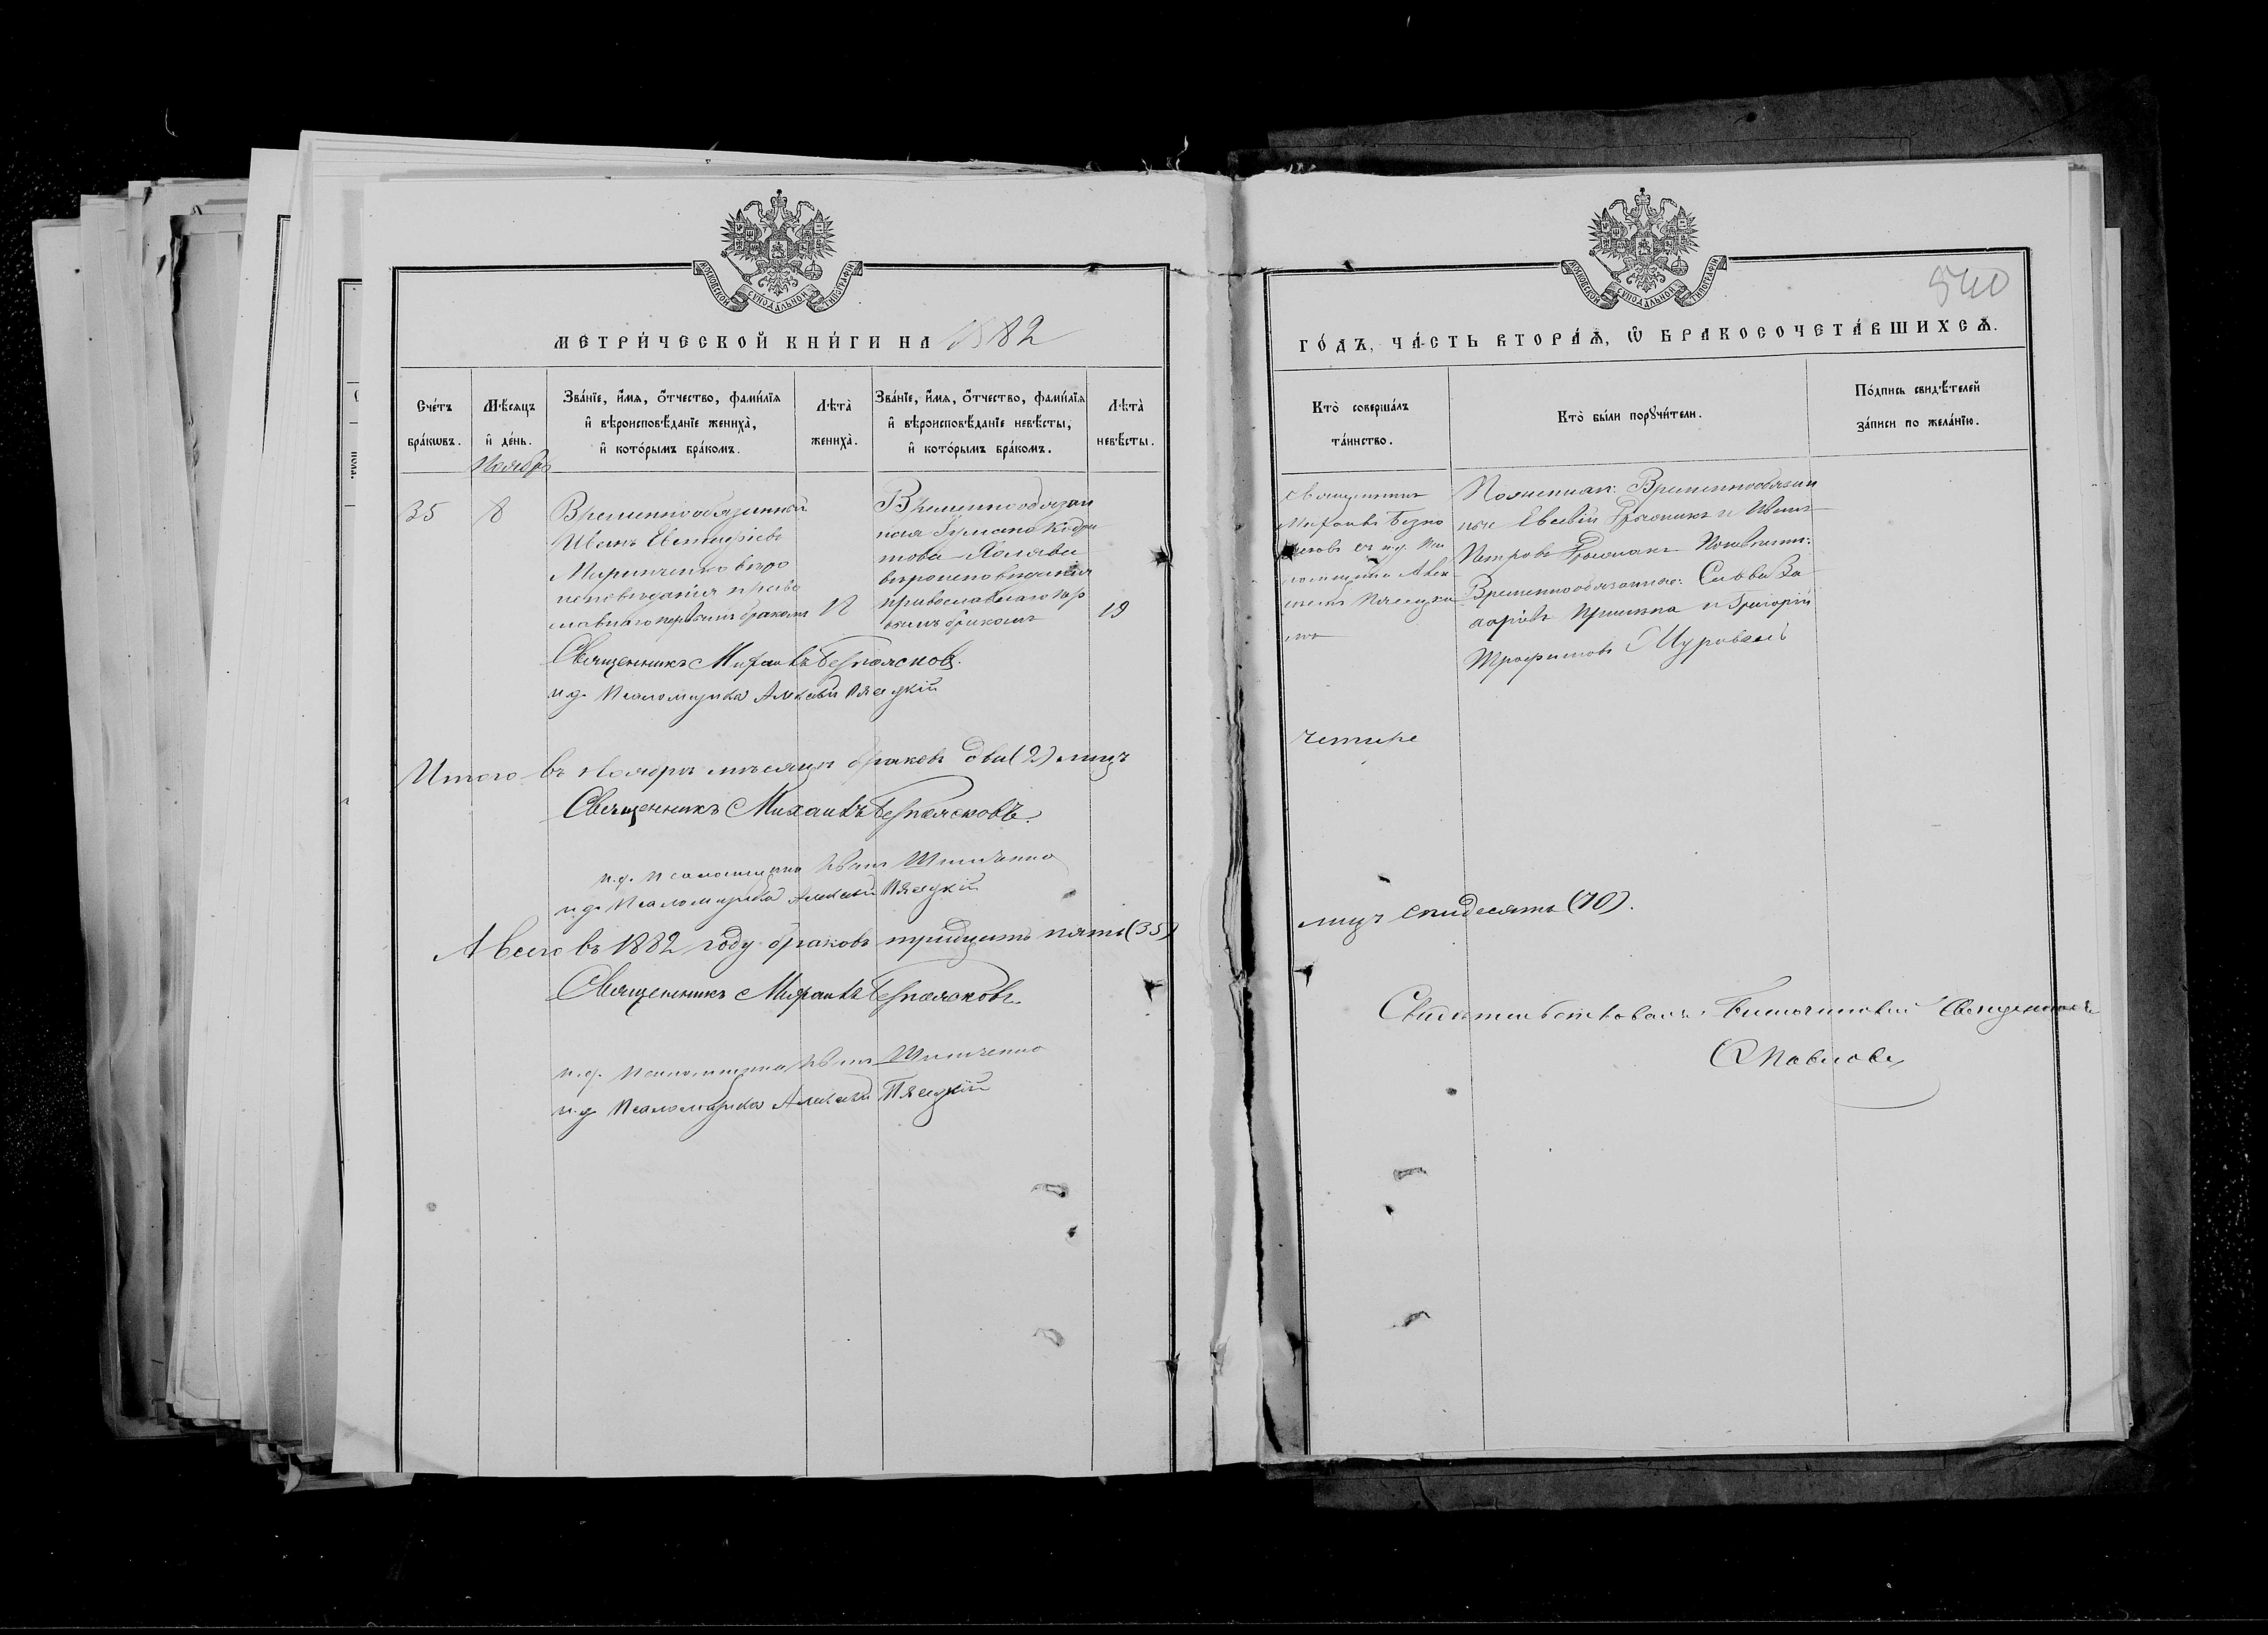 МОСКОВСКОЙ СѴНОДАЛЬНОЙ ТИПОГРАФІИ
МЕТРИ́ЧЕСКОЙ КНИ́ГИ НА 1882
Сче́тъ бра́кωвъ.
Мѣ́сяцъ и҆ де́нь.
Зва́нїе, и҆́мя, ѻ҆́тчество, фами́лїя и҆ вѣроисповѣ́данїе жениха̀, и҆ кото́рымъ бра́комъ.
Лѣ́та̀ жениха̀.
Зва́нїе, и҆́мя, ѻ҆́тчество, фами́лїя и҆ вѣроисповѣ́данїе невѣ́сты, и҆ кото́рымъ бра́комъ.
Лѣ́та̀ невѣ́сты.
Ноябрь
35
8
Временнообязанный
Иванъ Евстафіевъ
Миринченко веро
исповеданія право
славнаго первымъ бракомъ
18
Временнообязан
ная
вероисповеданія
православнаго пер
вымъ бракомъ
19
Священникъ Михаилъ Безпоясковъ.
и.д. Псаломщика Алексѣй Пясецкій
Итого въ Ноябрѣ месяцѣ браковъ два (2) лицъ
Священникъ Михаилъ Безпоясковъ.
и.д. Псаломщика Иванъ
и.д. Псаломщика Алексѣй Пясецкій
А всего въ 1882 году браковъ тридцать пять (35)
Священникъ Михаилъ Безпоясковъ.
и.д. Псаломщика Иванъ
и.д. Псаломщика Алексѣй Пясецкій
540
МОСКОВСКОЙ СѴНОДАЛЬНОЙ ТИПОГРАФІИ
ГО́ДЪ, ЧА́СТЬ ВТОРА́Ѧ, Ѽ БРАКОСОЧЕТА́ВШИХСѦ.
Кто̀ соверша́лъ та́инство.
Кто̀ бы́ли порꙋчи́тели.
По́дпись свидѣ́телей за́писи по жела́нїю.
Священникъ
Михаилъ Безпо
ясковъ съ и.д. Пса
ломщика Алек
сеемъ Пясецки
мъ
По женихѣ: Временнообязан
ные Евсевій и Иванъ
Петровъ По невѣстѣ:
Временнообязанные: Савва За
харіевъ и Григорій
Трофимовъ Муровасъ
четыре
лицъ семдесятъ (70).
Свидетельствовалъ: Благочинный Священникъ
Павловъ